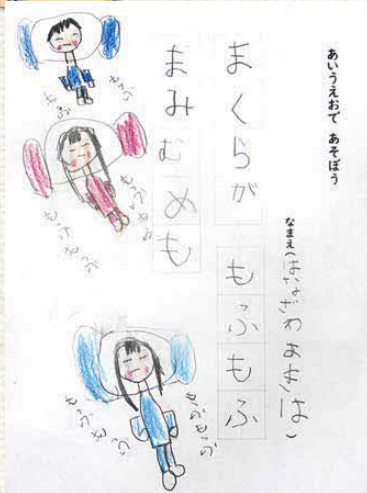 あいうえおで あそぼう
なまえ(はなざわ )
まくらが もふもふ
まみむめも
もふ
もふもふ
もふもふ
もふもふ